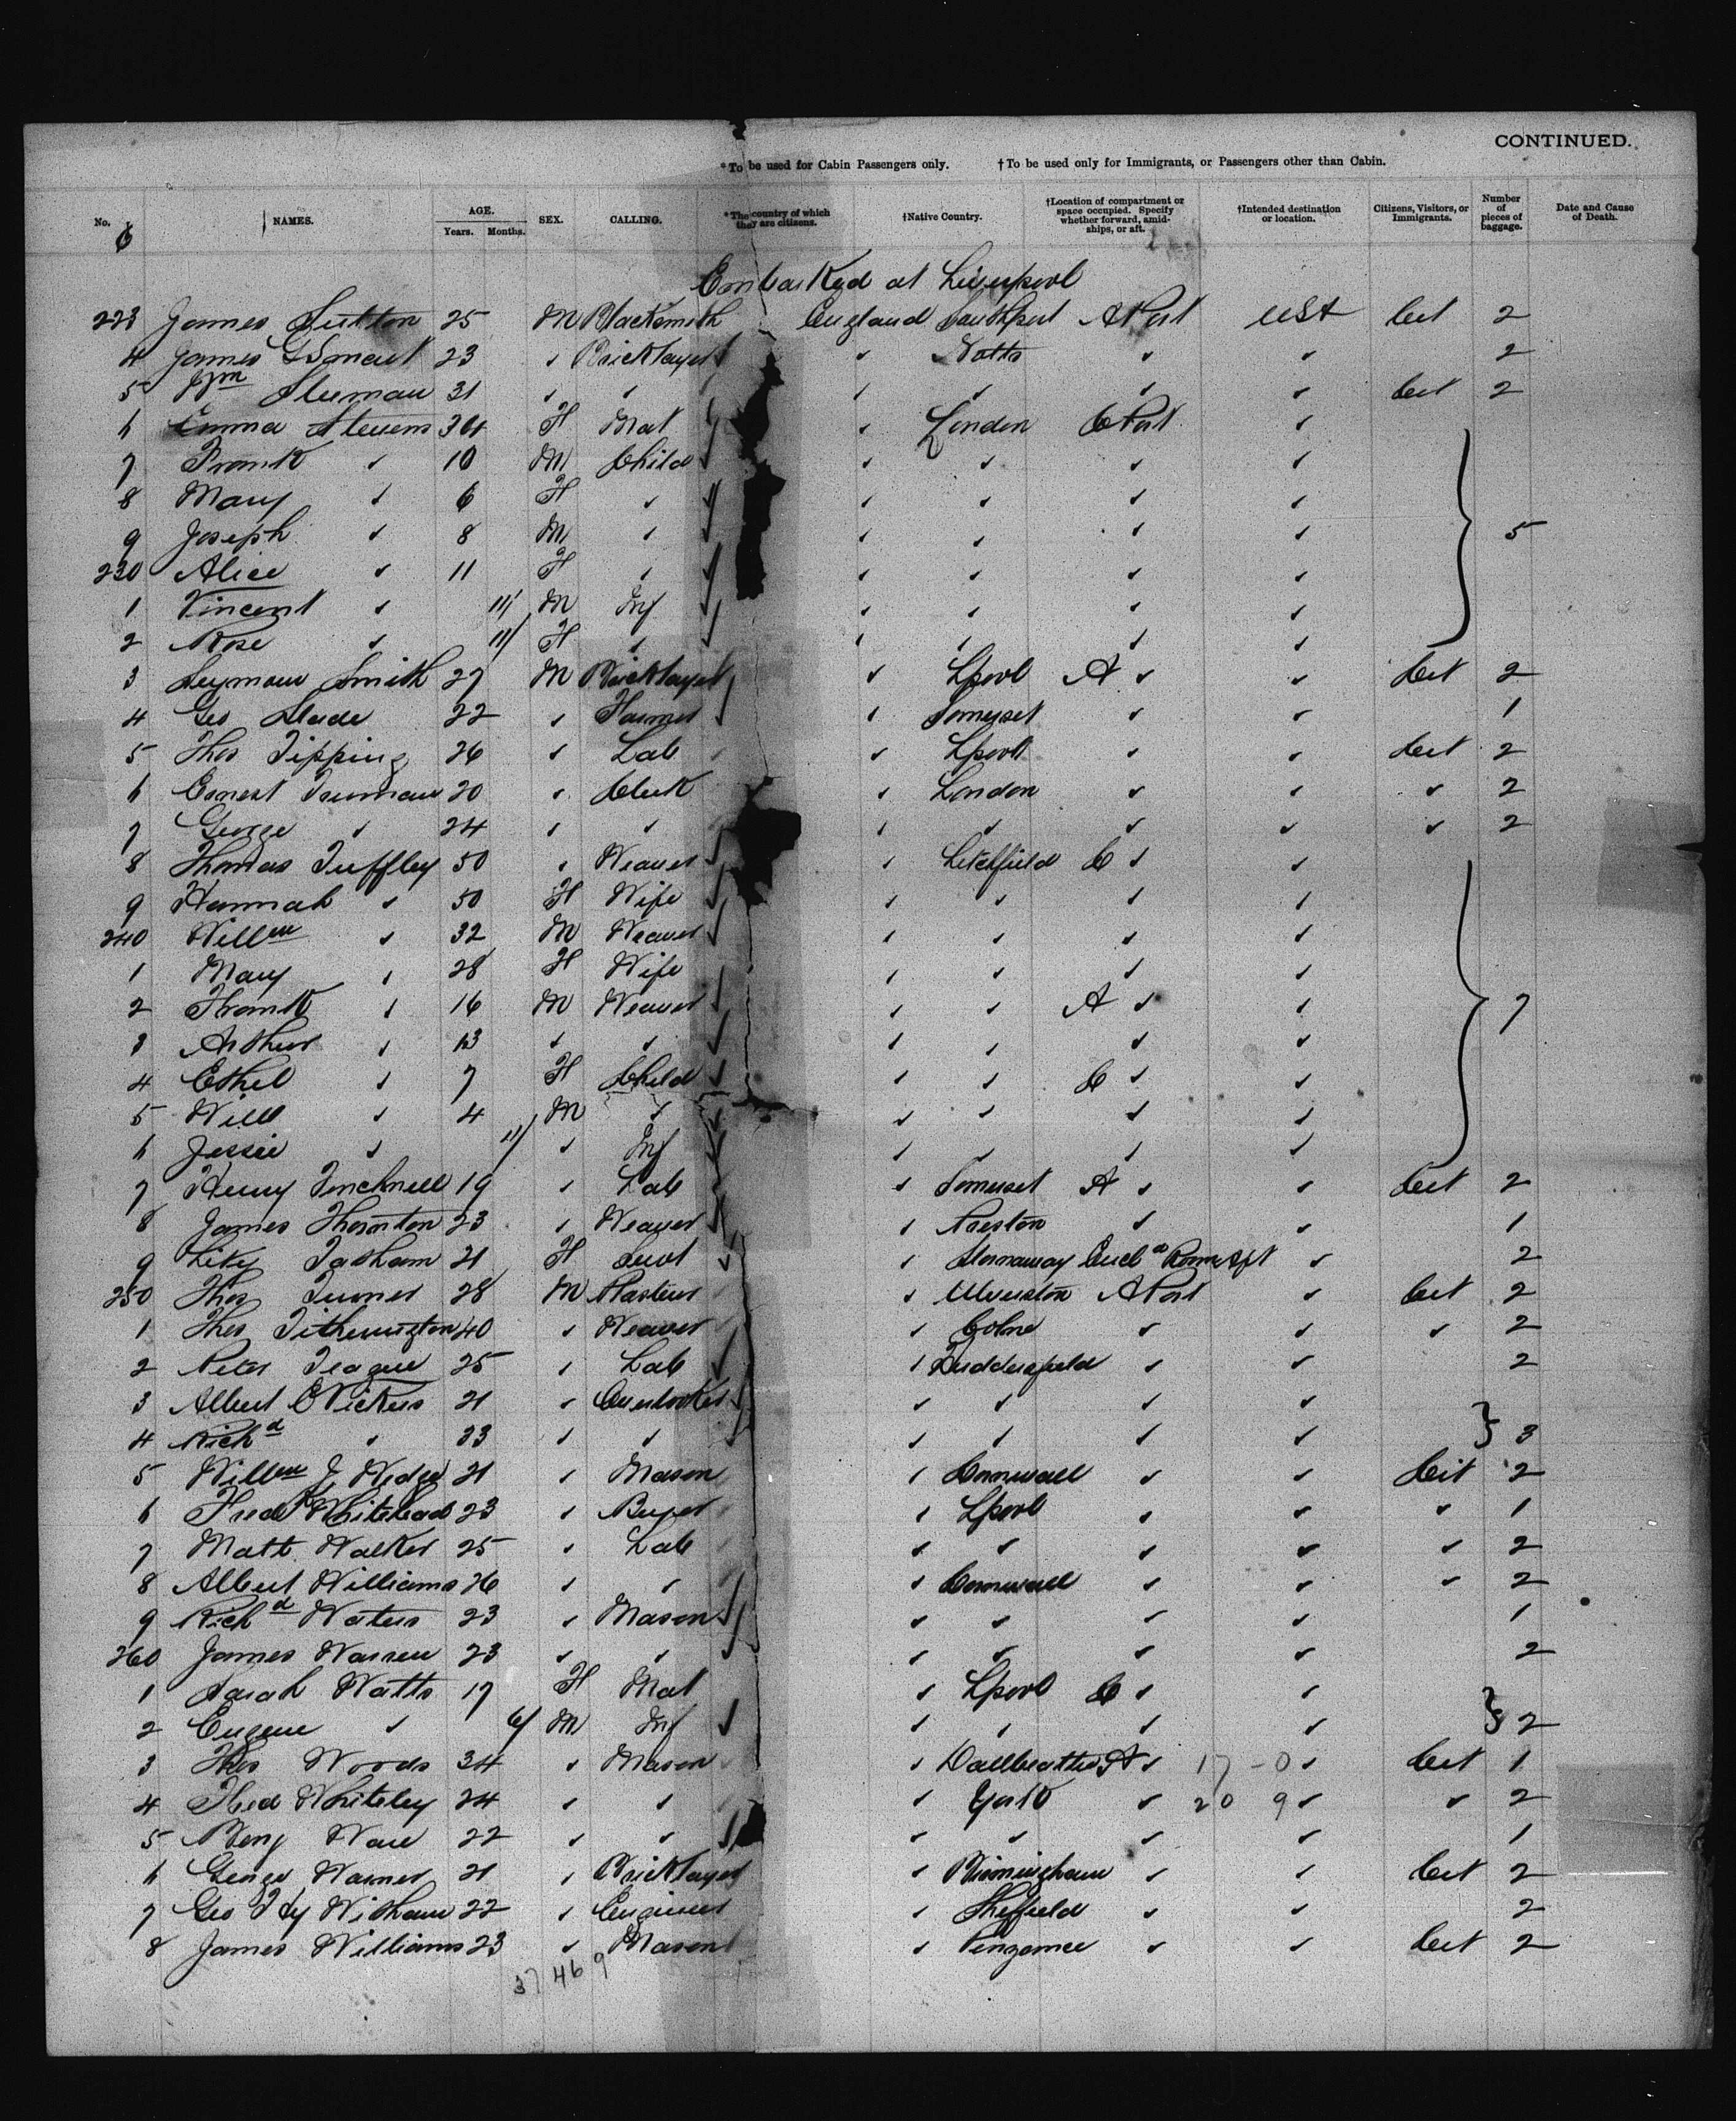 CONTINUED.
*To be used for Cabin Passengers only. †To be used only for Immigrants, or Passengers other than Cabin.
No. NAMES. AGE. Years. Months. SEX. CALLING. *The country of which they are citizens. †Native Country. †Location of compartment or space occupied. Specify whether forward, amidships, or aft. †Intended destination or location. Citizens, Visitors, or Immigrants. Number of pieces of baggage. Date and Cause of Death.
6
Embarked at Liverpool
223 James Sutton 25 M Blacksmith England Southport A Port USA Cit 2
4 James G Smart 23 " Bricklayer " Notts " " 2
5 Wm Sluman 31 " " " " " " Cit 2
6 Emma Stevens 34 F Mat " London C Port "
7 Frank " 10 M Child " " " "
8 Mary " 6 F " " " " "
9 Joseph " 8 M " " " " " 5
230 Alice " 11 F " " " " "
1 Vincent " 11/ M Inf " " " "
2 Rose " 11/ F " " " " "
3 Seymour Smith 27 M Bricklayer " Lpool A " " Cit 2
4 Geo Slade 22 " Farmer " Somerset " " 1
5 Thos Tipping 26 " Lab " Lpool " " Cit 2
6 Ernest Truman 20 " Clerk " London " " " 2
7 George " 24 " " " " " " " 2
8 Thomas Tuffley 50 " Weaver " Litchfield C " "
9 Hannah " 50 F Wife " " " "
240 Willm " 32 M Weaver " " " "
1 Mary " 28 F Wife " " " "
2 Frank " 16 M Weaver " " A " " 7
3 Arthur " 13 " " " " " "
4 Ethel " 7 F Child " " C " "
5 Will " 4 M " " " " "
6 Jessie " 11/ " Inf " " " "
7 Henry Tincknell 19 " Lab " Somerset A " " Cit 2
8 James Thornton 23 " Weaver " Preston " " 1
9 Tasham 21 F Servt " Stornaway Encld Room Aft " 2
250 Thos Turner 28 M Plasterer " Ulverston A Port " Cit 2
1 Thos Titherington 40 " Weaver " Colne " " " 2
2 Peter Teague 25 " Lab " Huddersfield " " 2
3 Albert E Vickers 21 " Overlooker " " " "
4 Richd " 23 " " " " " " 3
5 Willm J Wedge 21 " Mason " Cornwall " " Cit 2
6 Fred Whitehead 23 " Buyer " Lpool " " " 1
7 Matt Walker 25 " Lab " " " " " 2
8 Albert Williams 26 " " " Cornwall " " " 2
9 Richd Waters 23 " Mason " " " " 1
260 James Warren 23 " " " " " " 2
1 Sarah Watts 17 F Mat " Lpool C " "
2 Eugene " 6/ M Inf " " " " 2
3 Thos Woods 34 " Mason " Dallbeattie A " 17 - 0 " Cit 1
4 Fred Whiteley 24 " " " York " 20 9 " " 2
5 Benj Ware 22 " " " " " " 1
6 George Warner 21 " Bricklayer " Birmingham " " Cit 2
7 Geo Hy Witham 22 " Engineer " Sheffield " " 2
8 James Williams 23 " Mason " Penzance " " Cit 2
37 46 9